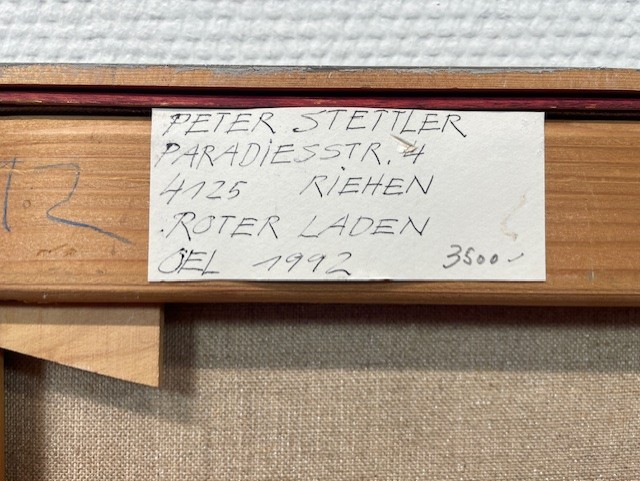 PETER STETTLER
PARADIESSTR. 4
4125 RIEHEN
ROTER LADEN
OEL 1992 3500.-
12